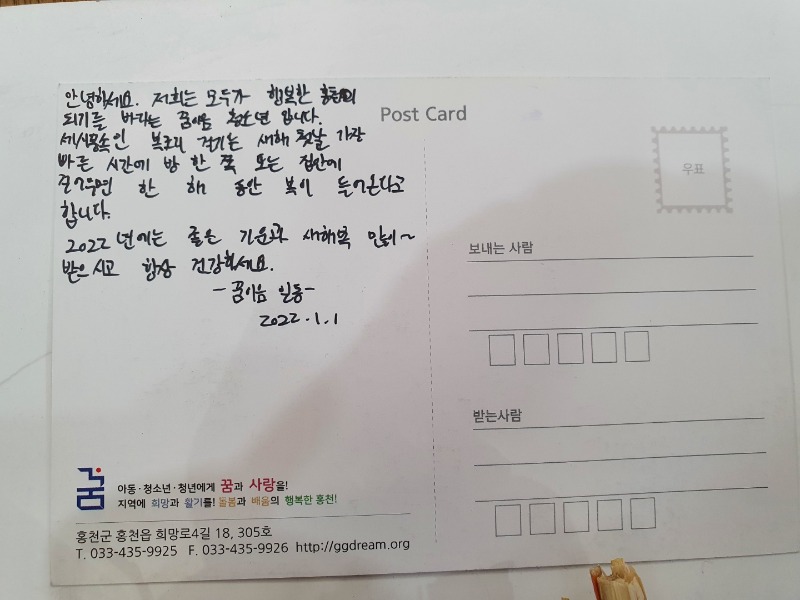 안녕하세요. 저희는 모두가 행복한 홍천이
되기를 바라는 꿈이음 청소년 입니다.
세시풍속인 복조리 걸기는 새해 첫날 가장
빠른 시간에 방 한 쪽 또는 집안에
걸어두면 한 해 동안 복이 들어온다고
합니다.
2022년에는 좋은 기운과 새해복 많이~
받으시고 항상 건강하세요.
-꿈이음 일동-
2022.1.1
Post Card
우표
보내는 사람
받는사람
꿈
아동·청소년·청년에게 꿈과 사랑을!
지역에 희망과 활기를! 돌봄과 배움의 행복한 홍천!
홍천군 홍천읍 희망로4길 18, 305호
T. 033-435-9925 F. 033-435-9926 http://ggdream.org